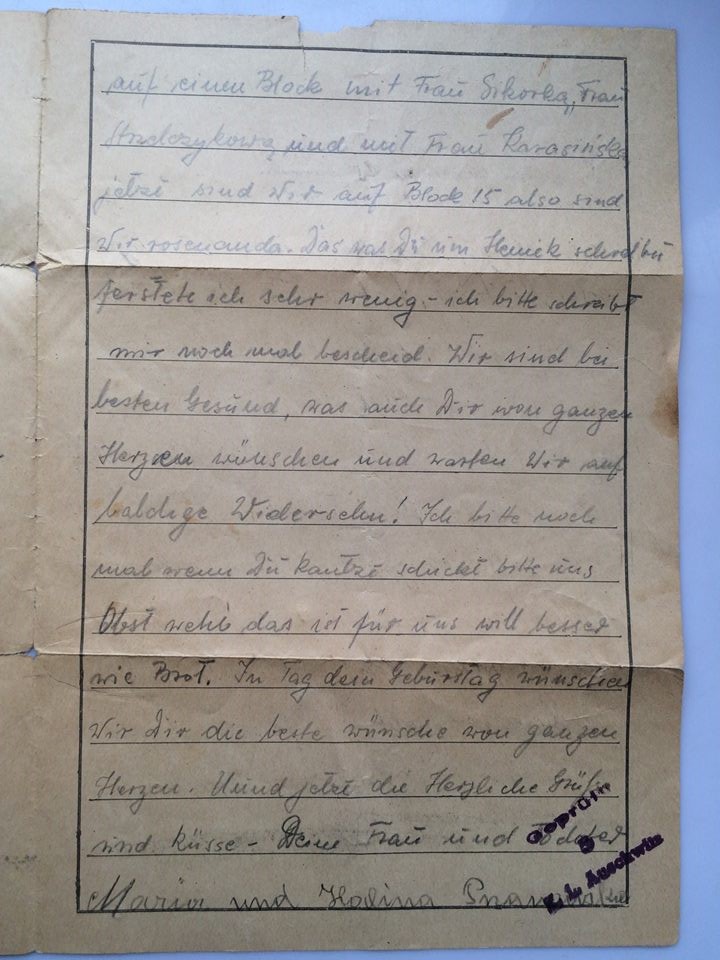 auf einen Block mit Frau Sikorką, Frau
und mit Frau Karasińska
jetzt sind Wir auf Block 15 also sind
Wir rosenanda. Das was Du um Heniek schreiben
ferstete ich sehr wenig – ich bitte schreibt
mir noch mal bescheid. Wir sind bei
besten Gesund, was auch Dir won ganzen
Herzen wünschen und warten Wir auf
baldige Widersehn! Ich bitte noch
mal wenn Du schickt bitte uns
Obst weil das ist für uns will besser
wie Brot. In Tag dein Geburstag wünschen
Wir Dir die beste wünsche won ganzen
Herzen. Uund jetzt die Herzliche Grüße
und Küsse – Deine Frau und Tochter
Maria und Halina
Geprüft
9
K.L. Auschwitz